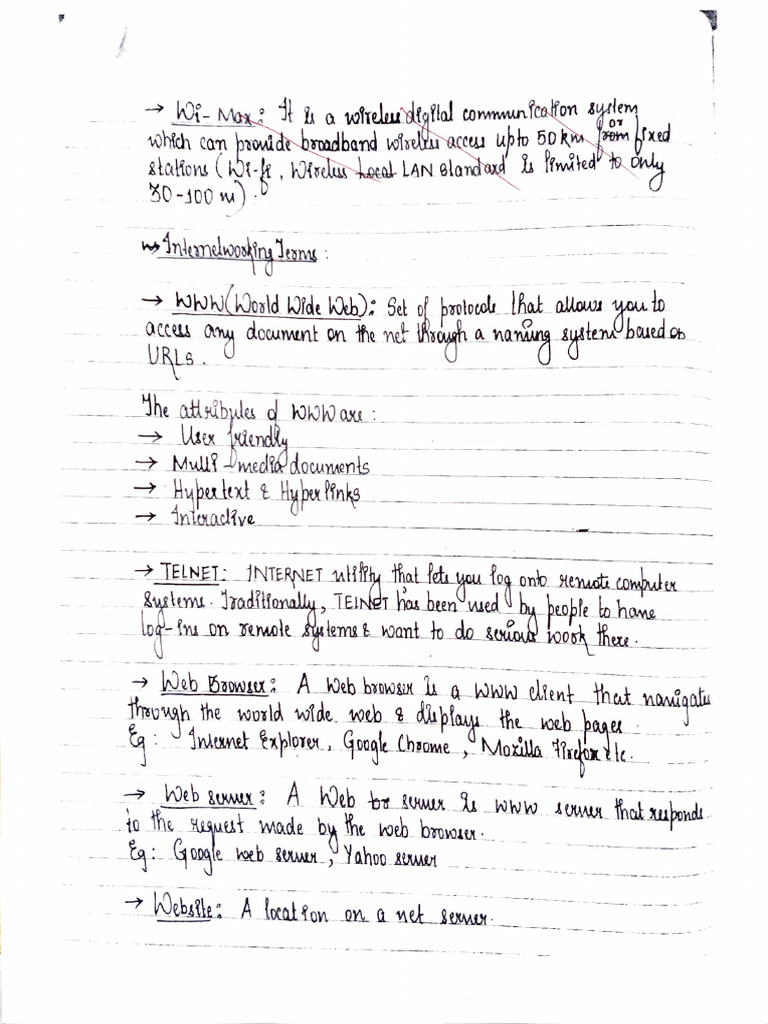 → Wi-Max: It is a wireless digital communication system
which can provide broadband wireless access upto 50 km from or fixed
stations (Wi-fi, Wireless Local LAN standard is limited to only
30-100 m).
Internetworking Terms:
→ WWW (World Wide Web): Set of protocols that allows you to
access any document on the net through a naming system based on
URLs.
The attributes of WWW are:
→ User friendly
→ Multi-media documents
→ Hypertext & Hyperlinks
→ Interactive
→ TELNET: INTERNET utility that lets you log onto remote computer
systems. Traditionally, TELNET has been used by people to have
log-ins on remote systems & want to do serious work there.
→ Web Browser: A Web browser is a WWW client that navigates
through the world wide web & displays the web pages.
Eg: Internet Explorer, Google Chrome, Mozilla Firefox etc.
→ Web server: A Web server is WWW server that responds
to the request made by the web browser.
Eg: Google web server, Yahoo server
→ Website: A location on a net server.